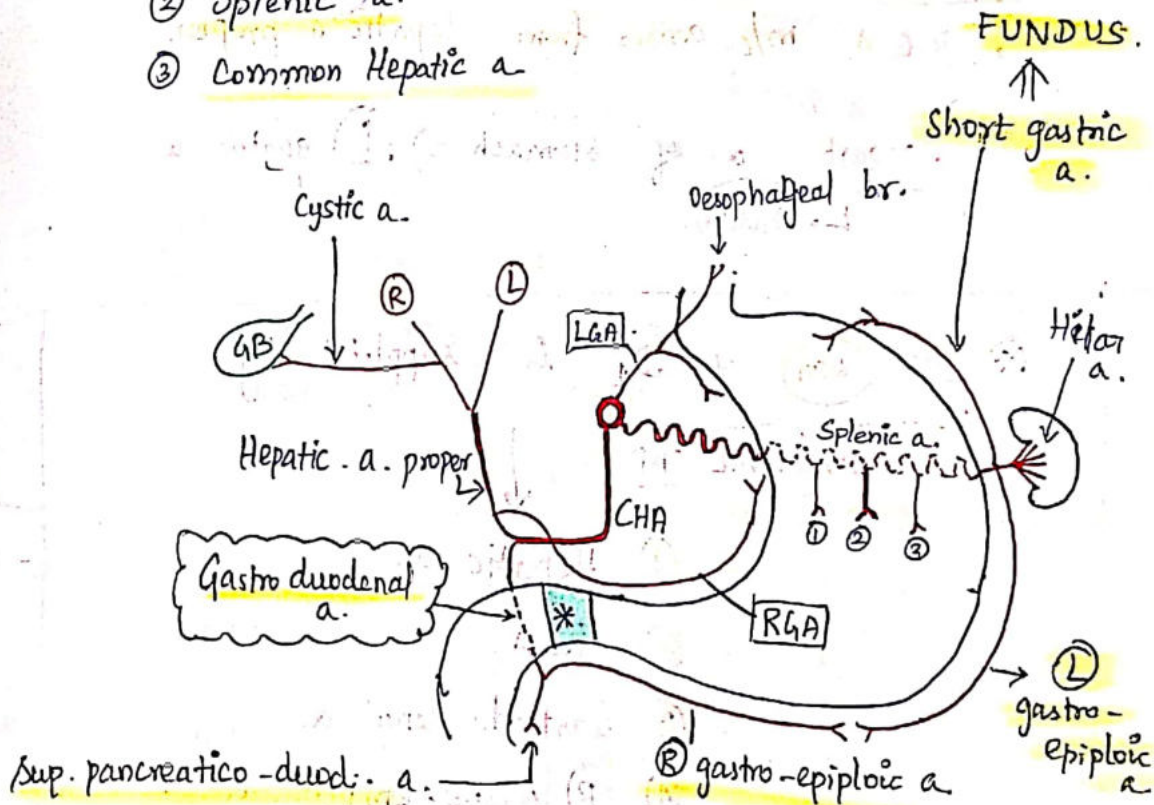 ② Splenic a.
③ Common Hepatic a
FUNDUS.
Short gastric
a.
Oesophageal br.
Cystic a.
R
L
GB
LGA
Hilar
a.
Splenic a.
Hepatic. a. proper
CHA
① ② ③
Gastro duodenal
a.
*
RGA
L
gastro-
epiploic
a
Sup. pancreatico-duod. a.
R gastro-epiploic a